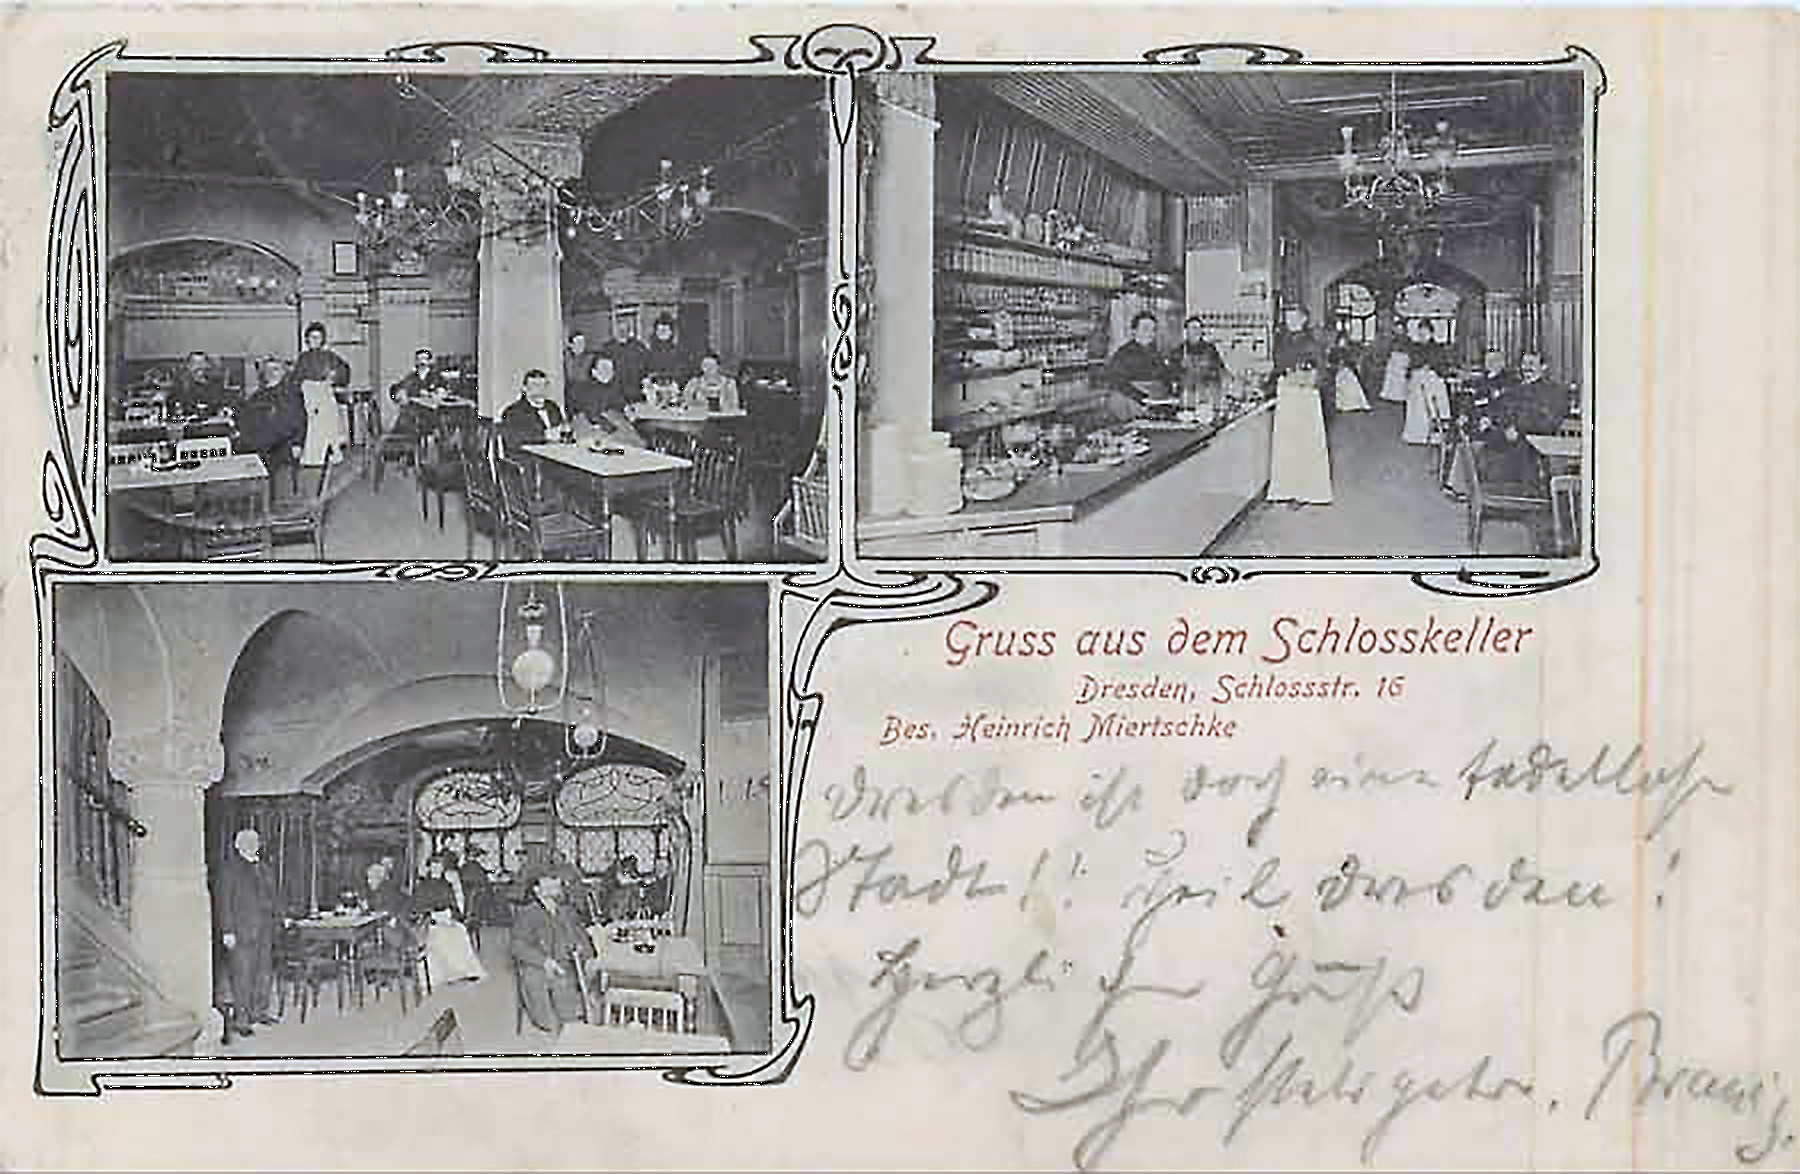 Gruss aus dem Schlosskeller
Dresden, Schlossstr. 16
Bes. Heinrich Miertschke
Dresden ist doch eine tadellose
Stadt!! Heil Dresden!
Herzlichen Gruß
Ihr stets getr.